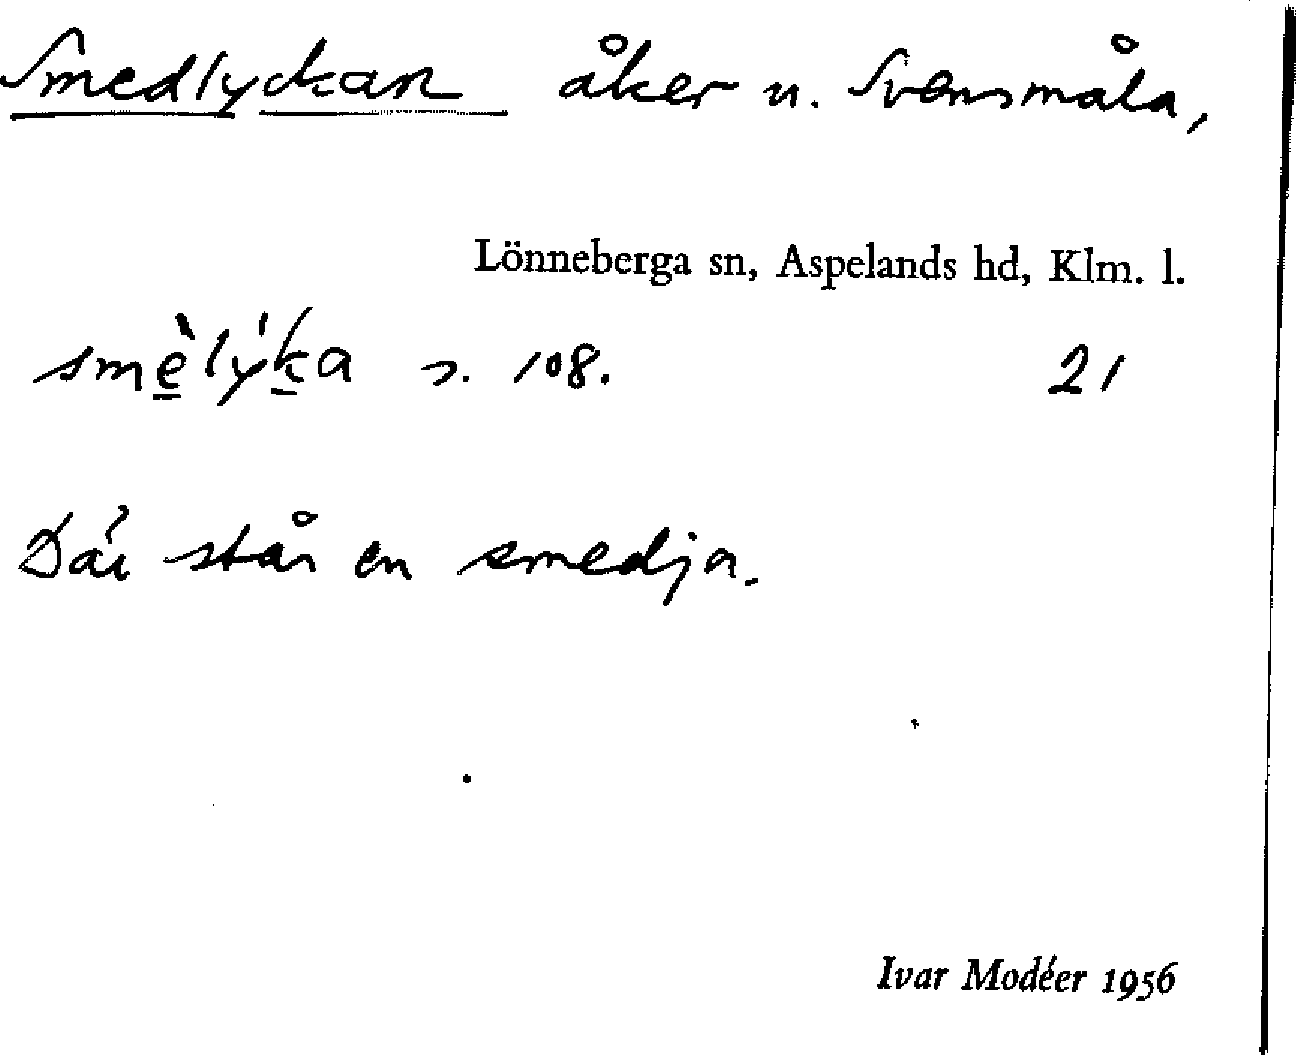 Smedlyckan åker u. Svensmåla,
Lönneberga sn, Aspelands hd, Klm. l.
smè̱lýḵa s. 108. 21
Där står en smedja.
Ivar Modéer 1956